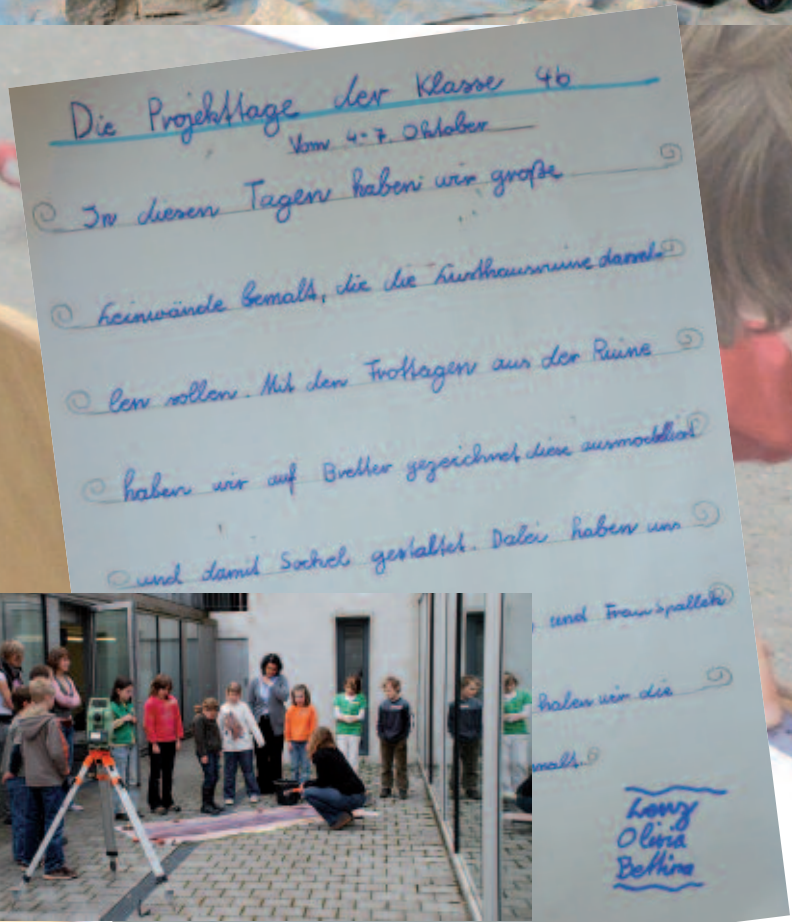 Die Projekttage der Klasse 4b
Vom 4.-7. Oktober
In diesen Tagen haben wir große
Leinwände bemalt, die die Lusthausruine darstel-
len sollen. Mit den Frottagen aus der Ruine
haben wir auf Bretter gezeichnet, diese ausmodelliert
und damit Sockel gestaltet. Dabei haben uns
und Frau Spalleck
haben wir die
malt.
Lenz
Olivia
Bettina